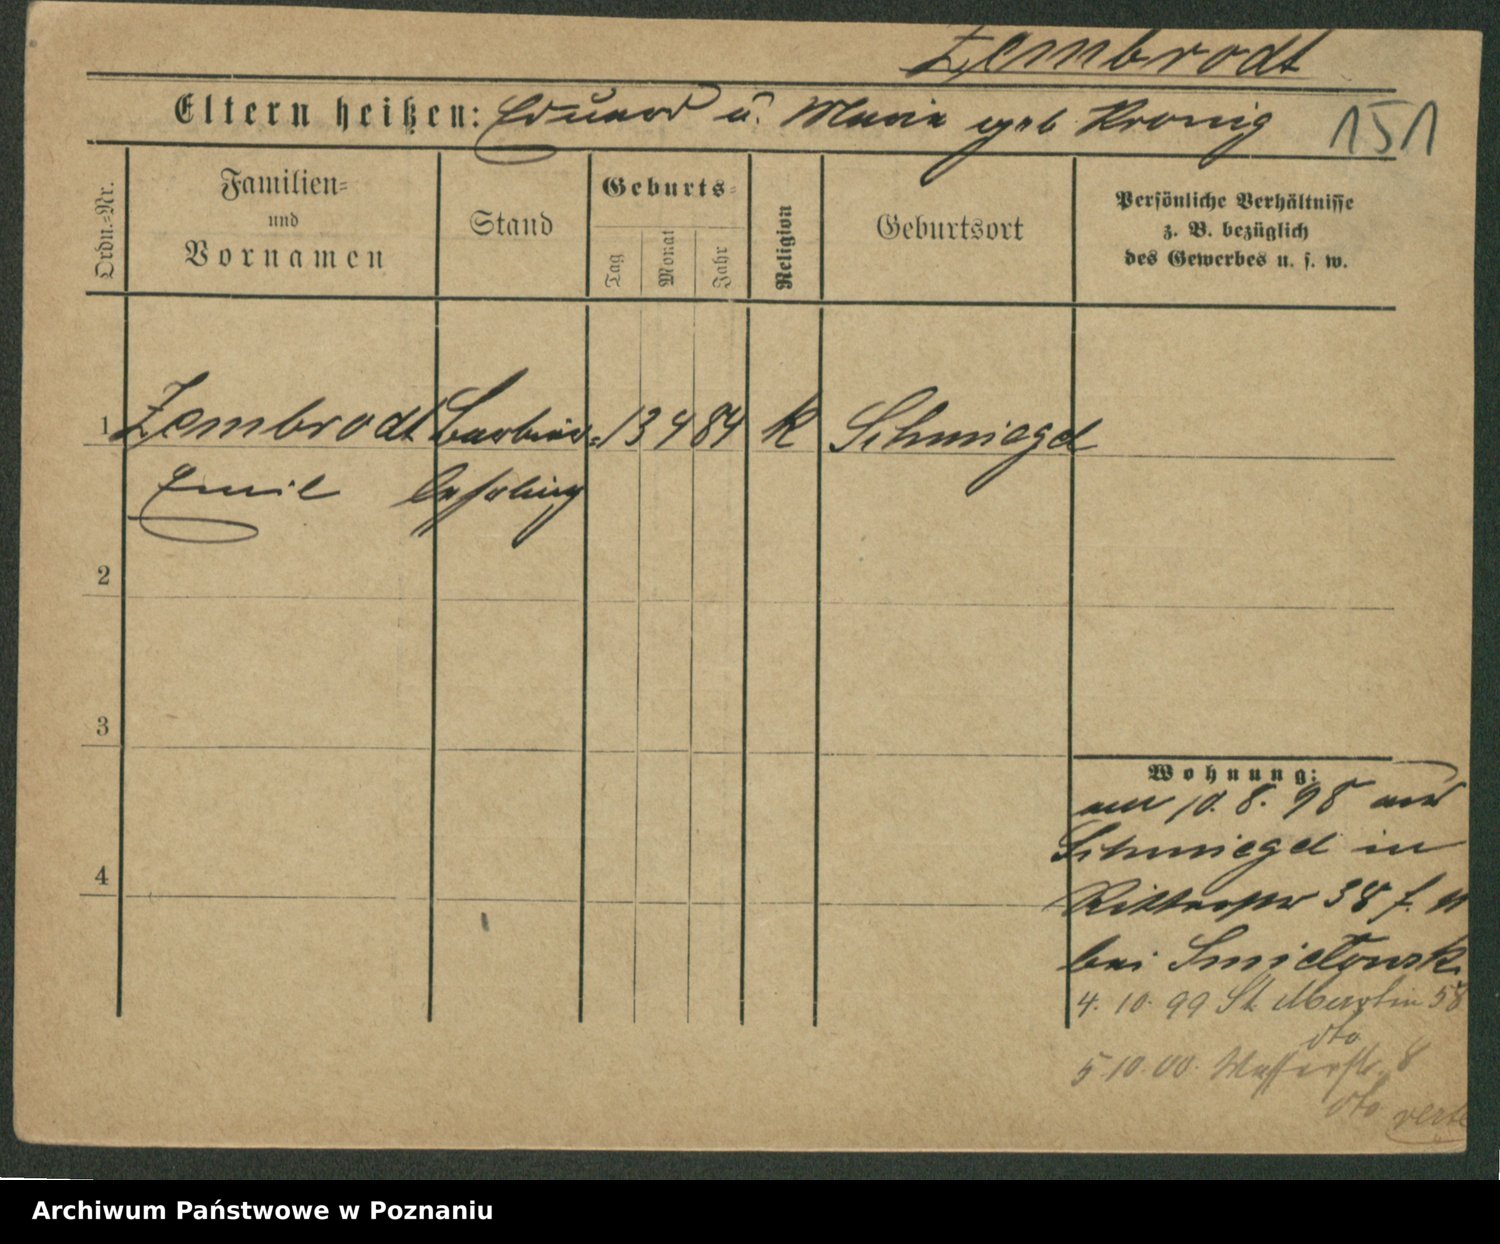 Zembrodt
Eltern heißen: Eduard u. Maria geb Kronig
151
Ordn.=Nr.
Familien=
und
Vornamen
Stand
Geburts=
Tag
Monat
Jahr
Religion
Geburtsort
Persönliche Verhältnisse
z. B. bezüglich
des Gewerbes u. s. w.
1 Zembrodt Barbier= 13 4 84 k Schmiegel
Emil lehrling
2
3
4
Wohnung:
am 10. 8. 98 aus
Schmiegel in
Ritterstr 38
bei Smiełowski
4. 10. 99 St. Martin 58
dto
5 10. 00. Wasserstr. 8
dto verte
Archiwum Państwowe w Poznaniu